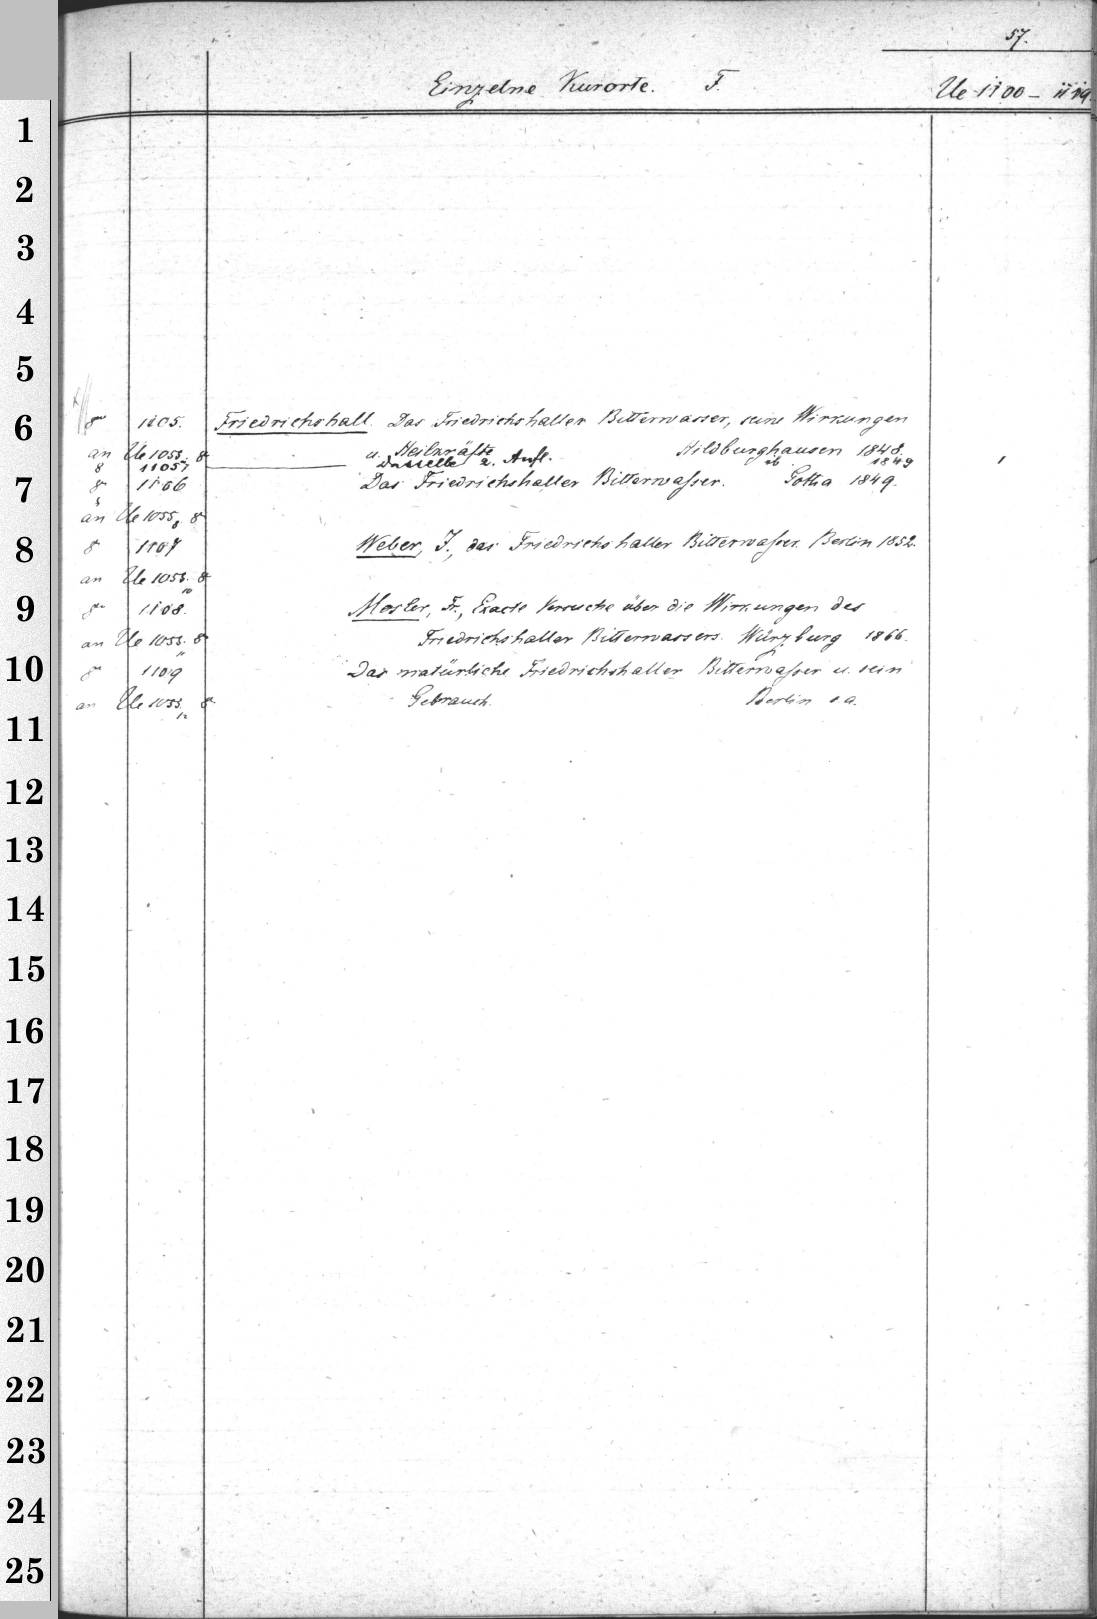 57.
Einzelne Kurorte. F. Ue 1100 – 1119.
1
2
3
4
5
6
8° 1105. Friedrichshall. Das Friedrichshaller Bitterwasser, seine Wirkungen
an Ue 1055 8° u. Heilkräfte Hildburghausen 1848.
8 1105 Dasselbe 2. Aufl. ib 1849
7
8° 1106 Das Friedrichshaller Bitterwasser. Gotha 1849.
an Ue 1055 8°
8
8° 1107 Weber, J., das Friedrichshaller Bitterwasser. Berlin 1852.
an Ue 1055. 8°
10
9
8° 1108. Mosler, Fr., Exacte Versuche über die Wirkungen des
an Ue 1055. 8° Friedrichshaller Bitterwassers. Würzburg 1866.
11
10
8° 1109 Das natürliche Friedrichshaller Bitterwasser u. sein
an Ue 1055. 8° Gebrauch. Berlin s.a.
12
11
12
13
14
15
16
17
18
19
20
21
22
23
24
25